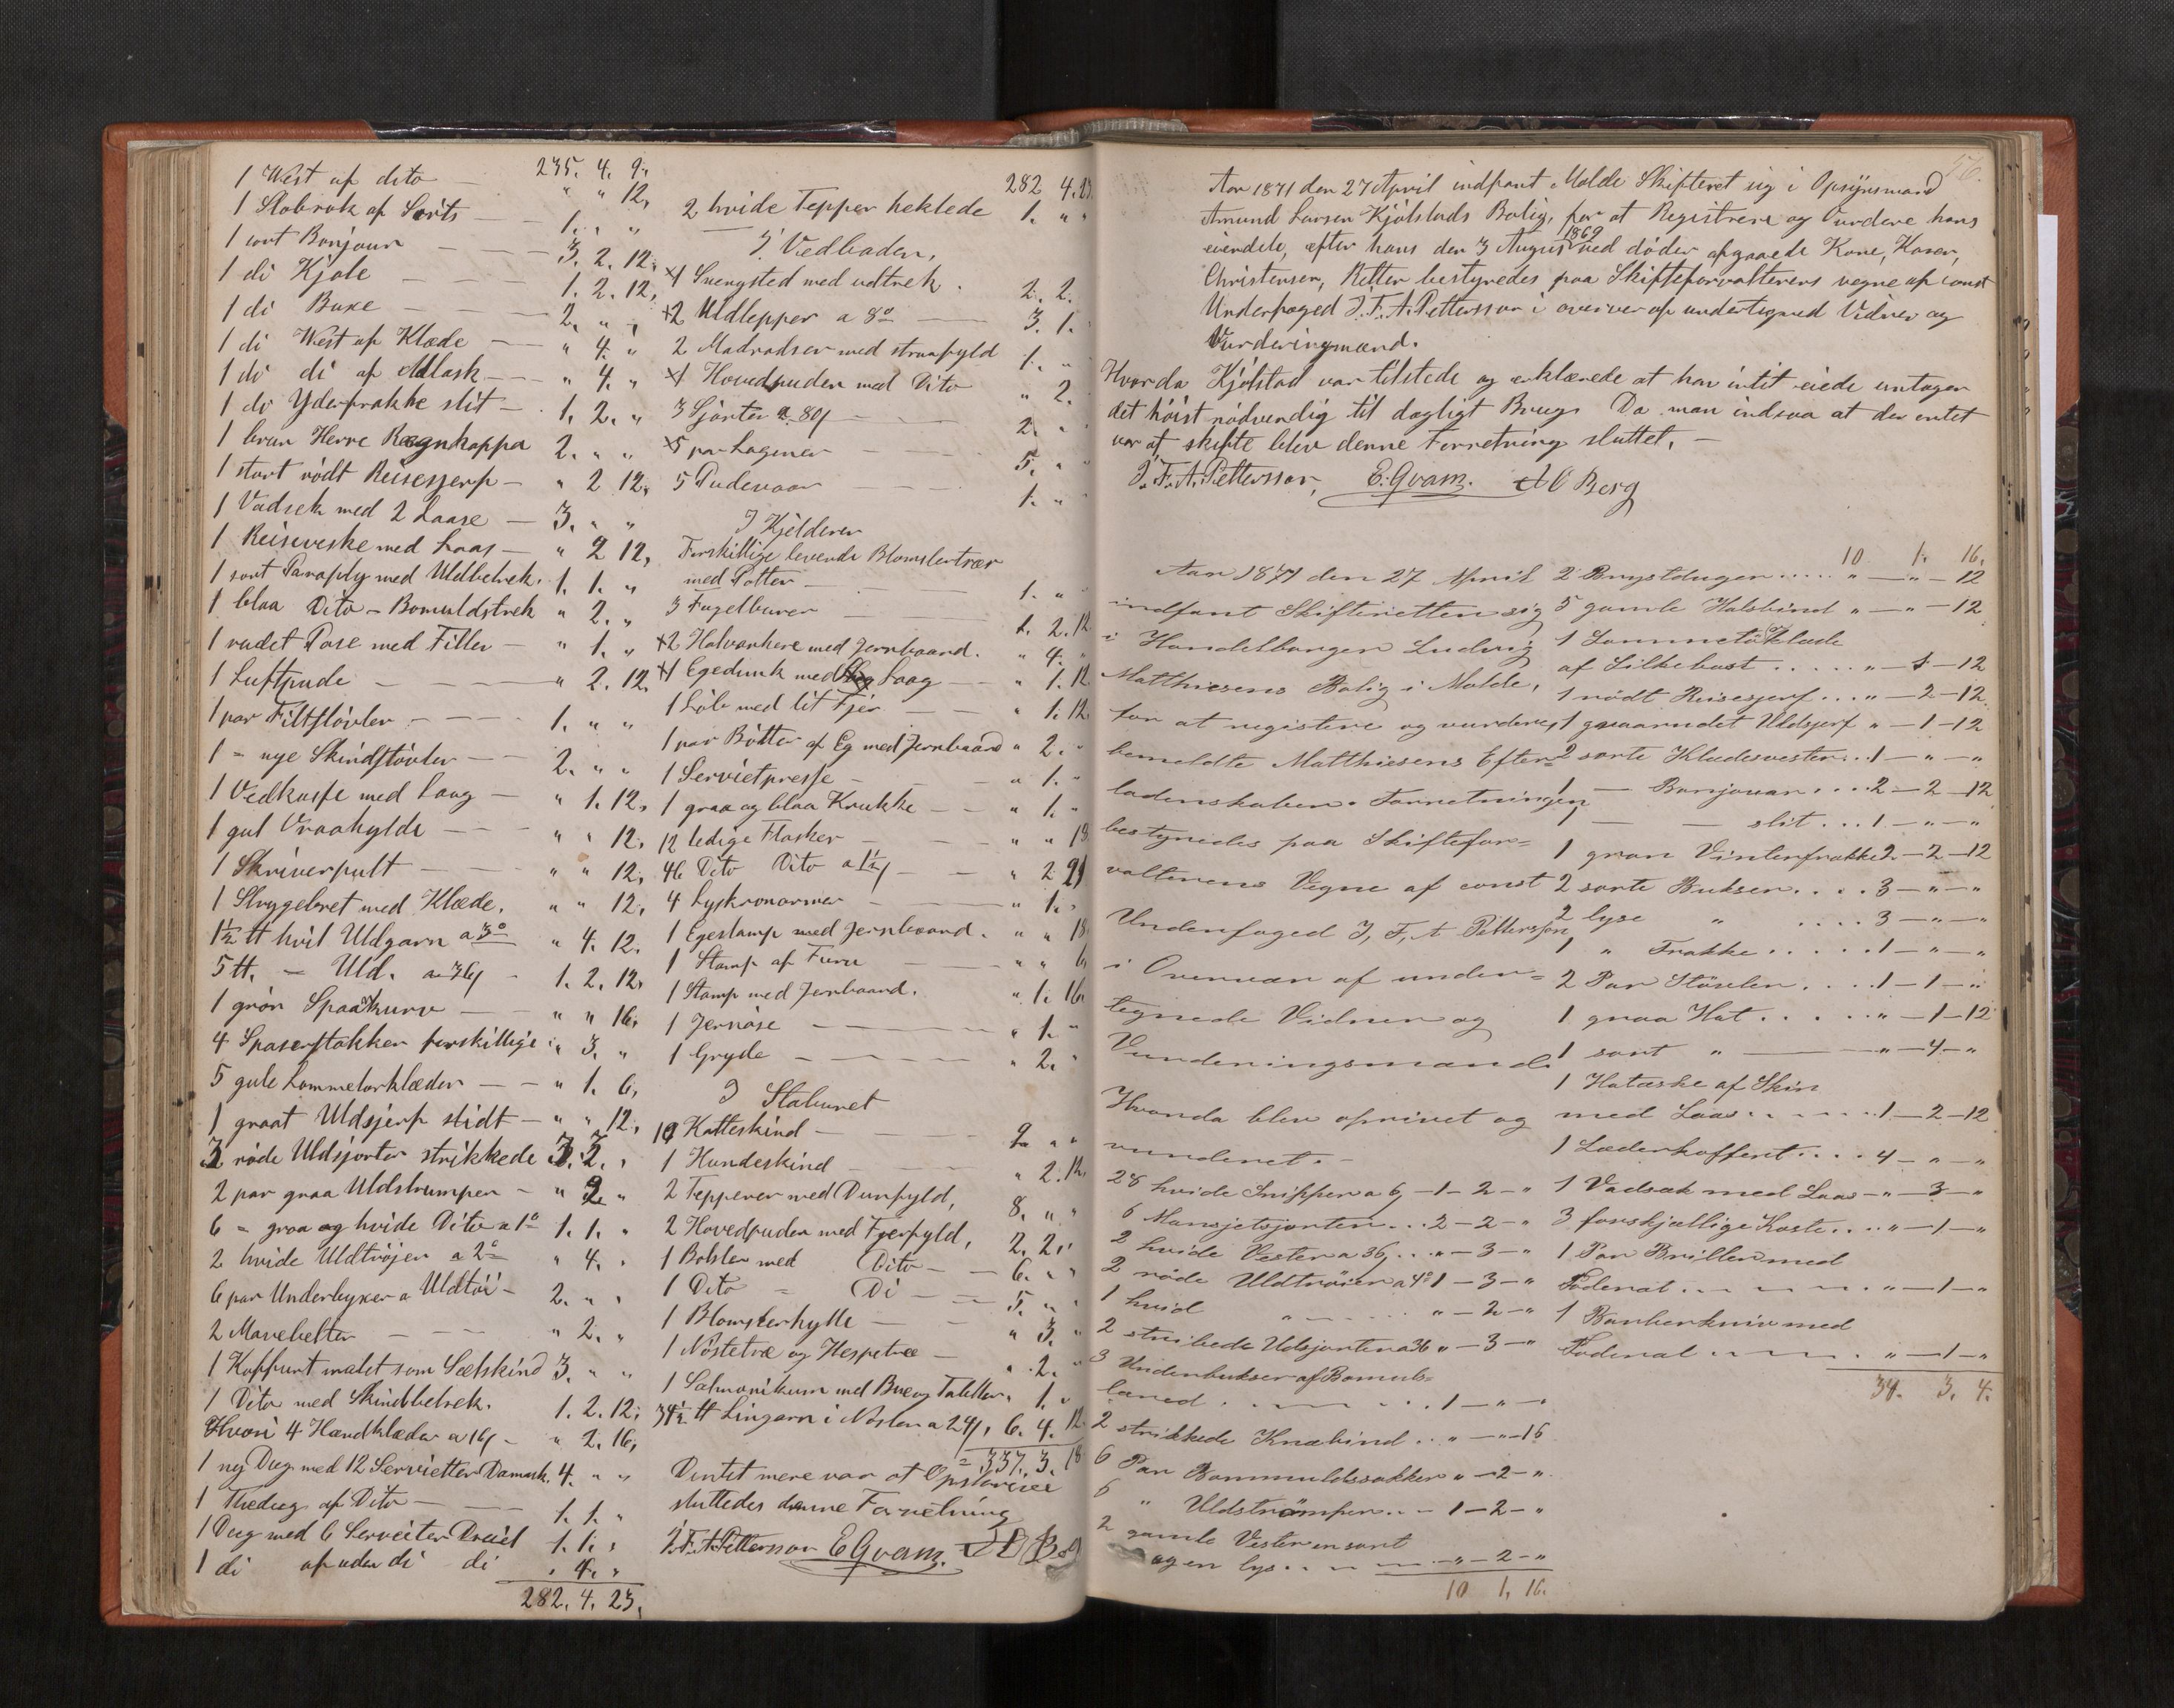 235. 4. 9.
1 West af dito — " " 12,
1 Slobrok af Sirts — 1. " "
1 sort Bonjour — 3. 2. 12,
1 di Kjole — 1. 2. 12,
1 di Buxe — 2. " "
1 di West af Klæde — " 4. "
1 do di af Atlask — " 4. "
1 do Yderfrakke slit — 1. 2. "
1 brun Herre Regnkappa 2. " "
1 stort rödt Reisesjerf — " 2 12,
1 Vadsek med 2 Laase — 3. " "
1 Reiseveske med Laas — " 2 12,
1 sort Paraply med Uldbetrek. 1. 1. "
1 blaa Dito – Bomuldstrek " 2. "
1 rudet Pose med Filler — " 1. "
1 Luftpude — " 2. 12.
1 par Filtstövler — 1. " "
1 = nye Skindstövler — 2. " "
1 Vedkasse med Laag — " 1. 12,
1 gul Vraahylde — " " 12.
1 Skriverpult — " " 12,
1 Strygebret med Klæde. " " 12,
1½ ℔ hvit Uldgarn a 3o " 4. 12.
5 ℔. = Uld. a 36 - 1. 2. 12,
1 grön Spaakurv — " " 16,
4 Spaserstokker forskillige " 3. "
5 gule Lommetorklæder — " 1. 6,
1 graat Uldsjerf slidt — " " 12,
3 röde Uldsjorter strikkede 3. 2. "
2 par graa Uldstrumper — " 2. "
6 = graa og hvide Dito a 1o 1. 1. "
2 hvide Uldtröjer a 2o " 4. "
6 par Underbyxer a Uldtöi – 2. " "
2 Mavebelter — " 2. "
1 Koffurt malet som Sælskind 3. " "
1 Dito med Skindbetrek. 1. 2. 12,
Hvori 4 Handklæder a 16 — " 2. 16,
1 ny Dug med 12 Servietter Damask. 4. " "
1 Thedug af Dito — 1. 1. "
1 Dug med 6 Serveiter Dreiel 1. 1. "
1 di af uden di di " 4. "
282. 4. 23,
282 4. 23
2 hvide Tepper heklede 1. " "
I Vedboden,
×1 Svengsted med udtrek. 2. 2.
×2 Uldlepper a 8o — 3. 1.
2 Madradser med straafyld 1. "
×1 Hovedpuder med Dito " 2.
3 Sjorter a 80 — 2. "
×5 par Lagener — 5. "
5 Pudevaar — 1. "
I Kjelderen
Forskillige levende Blomstertrær
med Potter — 1. "
3 Fugelburer — 1. 2. 12
×2 Halvankere med Jernbaand. " 4. "
×1 Egedunk med Laag — " 1. 12
1 Löb med lit Fjer — " 1. 12
1 par Bötter af Eg med Jernbaand " 2. "
1 Servietpresse — " 1. "
1 graa og blaa Krukke — " 1. "
12 ledige Flasker — " " 18
46 Dito Dito a 1½ — " 2 21
4 Lyskronarmer — " 1. "
1 Egestamp med Jernbaand. " " 18
1 Stamp af Furu — " " 6
1 Stamp med Jernbaand. " 1. 16
1 Jernöse — " 1. "
1 Gryde — " 2. "
I Staburet
10 Katteskind — 2. " "
1 Hundeskind — " 2. 12
2 Tepperer med Dunfyld, 8. " "
2 Hovedpuder med Fjerfyld, 2. 2. "
1 Bolster med Dito — 6. " "
1 Dito = Di — 5. " "
1 Blomsterhylle — " 3. "
1 Nöstetræ og Hespetræ — " 2. "
1 Salmonikum med Bue og Tabeller. 1. "
34½ ℔ Lingarn i Nöster a 24, 6. 4. 12
= 337. 3. 18
Da intet mere var at Opskrive
sluttedes denne Forretning
J. F. A. Pettersson E Qvam. A O Berg
56.
Aar 1871 den 27 April indfant Molde Skifteret sig i Opsynsmand
Amund Larsen Kjölstads Bolig, for at Registrere og Vurdere hans
eiendele, efter hans den 3 August 1869 ved döden afgaaede Kone, Karen,
Christensen, Retten bestyredes paa Skifteforvalterens vegne af const
Underfoged J. F. A. Pettersson i overver af undertegned Vidner og
Vurderingsmænd.
Hvorda Kjölstad var tilstede og erklærede at han intet eiede untagen
det höist nödvendig til dagligt Brug. Da man indsaa at der intet
var at skifte blev denne Forretning sluttet. —
J. F. A. Pettersson, E. Qvam. A O Berg
Aar 1871 den 27 April
indfant Skifteretten sig
i Handelborger Ludvig
Matthiesens Bolig i Molde,
for at registere og vurdere,
bemeldte Matthiesens Efter=
ladenskaber. Forretningen
bestyredes paa Skiftefor=
valterens Vegne af const
Underfoged J, F, A Pettersson
i Overvær af under=
tegnede Vidner og
Vurderingsmænd.
Hvorda blev oprivet og
vurderet. —
28 hvide Snipper a 6 — 1 — 2 — "
6 Mansjetsjorter... 2 — 2 — "
2 hvide Vester a 36... " — 3 — "
2 röde Uldtröier a 4o 1 — 3 — "
1 hvid " " — 2 — "
2 stribede Udsjorter a 36 " — 3 — "
3 Underbukser af Bomuls=
lærred . . . 1 — " — "
2 strikkede Knæbind.. " — " — 16
6 Par Bommuldssokker " — 2 — "
6 " Uldströmper... 1 — 2 — "
2 gamle Vester en sort
og en lys . . . " — 2 — "
10 1, 16.
10 1. 16.
2 Brystduger . . . . . " — " — 12
5 gamle Halsbind " — " — 12
1 Lommetörklæde
af Silkebast . . . . . " — 1 — 12
1 rödt Reisesjerf... " — 2 — 12
1 graarudet Uldsjerf " — 1 — 12
2 sorte Kladesvester.. 1 — " — "
1 — Bonjouar.... 2 — 2 — 12
1 — — slit... 1 — " — "
1 gron Vinterfrakke 2 — 2 — 12
2 sorte Bukser.... 3 — " — "
2 lyse " .... 3 — " — "
1 " Frakke..... 1 — " — "
2 Par Stövler.... 1 — 1 — "
1 graa Hat..... " — 1 — 12
1 sort " — " — 4 — "
1 Hatæske af Skin
med Laas..... 1 — 2 — 12
1 Læderkoffert.... 4 — " — "
1 Vadsæk med Laas — " — 3 — "
3 forskjællige Koste.... " — 1 — "
1 Par Briller med
Foderal . . . " — 1 — "
1 Barberkniv med
Foderal . . . " — 1 — "
34. 3. 4.